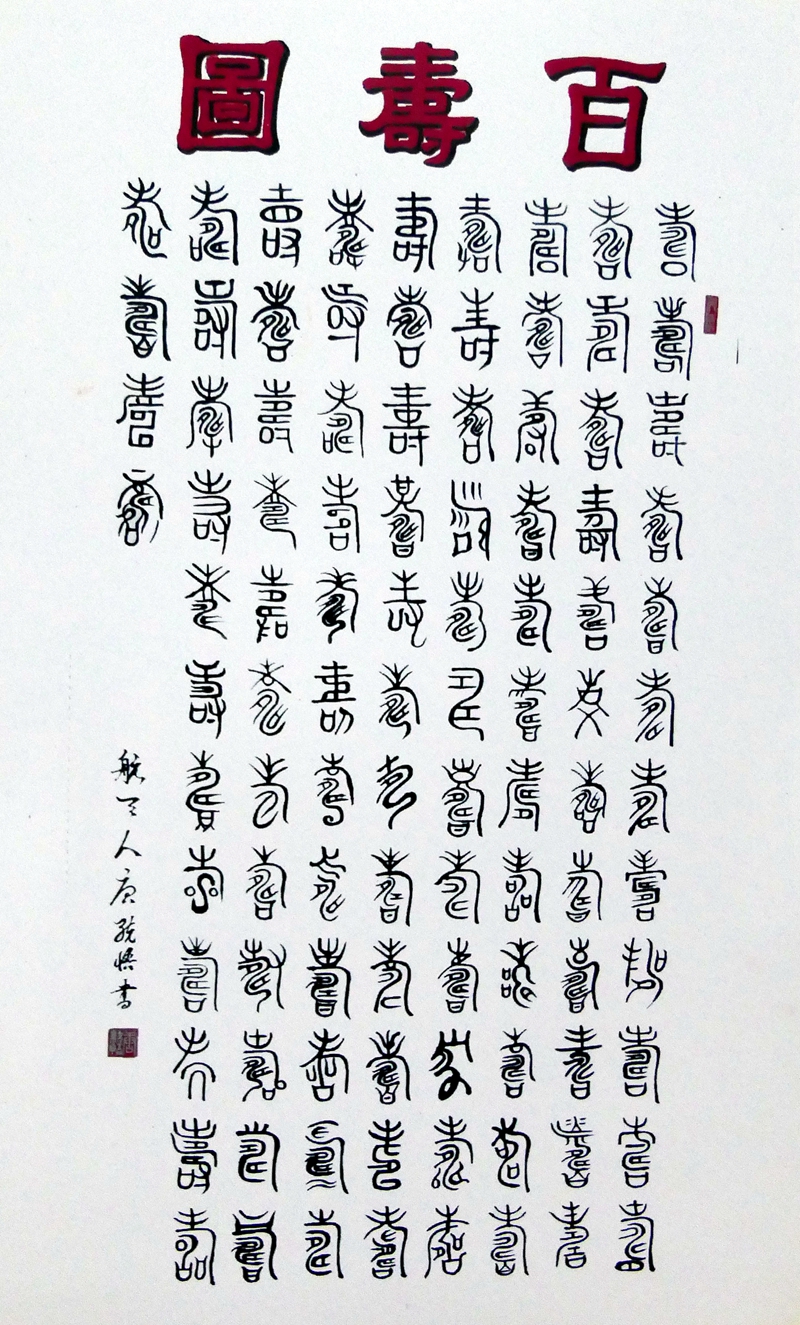 百壽圖
壽壽壽壽壽壽壽壽壽壽壽壽
壽壽壽壽壽壽壽壽壽壽壽壽
壽壽壽壽壽壽壽壽壽壽壽壽
壽壽壽壽壽壽壽壽壽壽壽壽
壽壽壽壽壽壽壽壽壽壽壽壽
壽壽壽壽壽壽壽壽壽壽壽壽
壽壽壽壽壽壽壽壽壽壽壽壽
壽壽壽壽壽壽壽壽壽壽壽壽
壽壽壽壽
航天人唐悟書